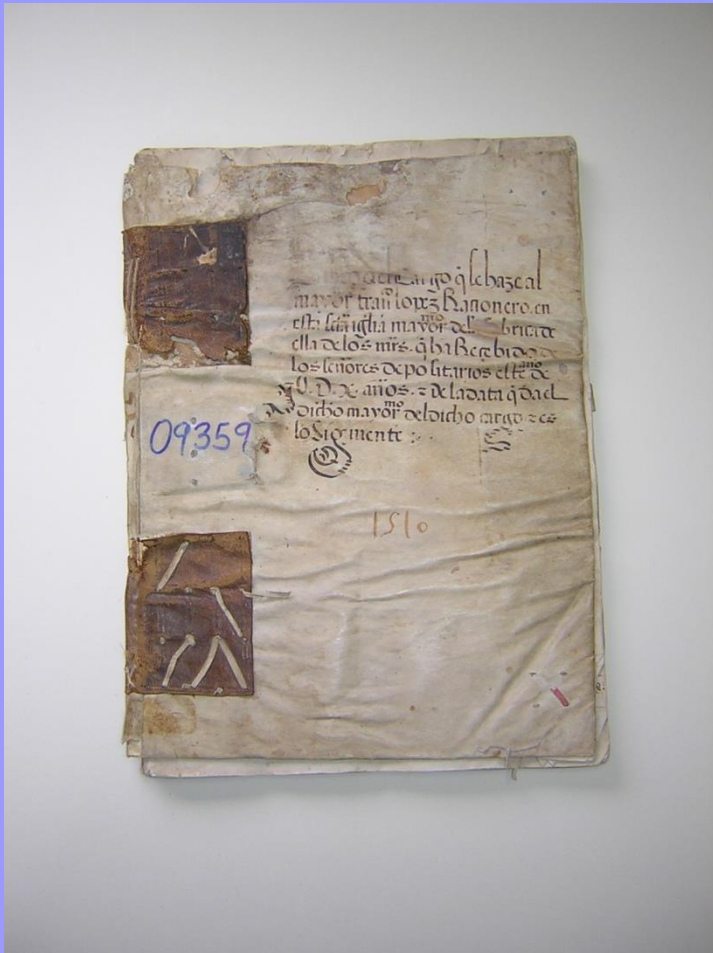 cargo q̃ se haze al
mayor^mo fran^co lopez Racionero en
esta sc̃ta iglia mayor de
ella de los mrs. q̃ ha Recebido de
los señores depositarios este año de
D. X. años. z de la data q̃ da el
dicho mayor^mo del dicho cargo z es
lo Siguiente
09359
1510